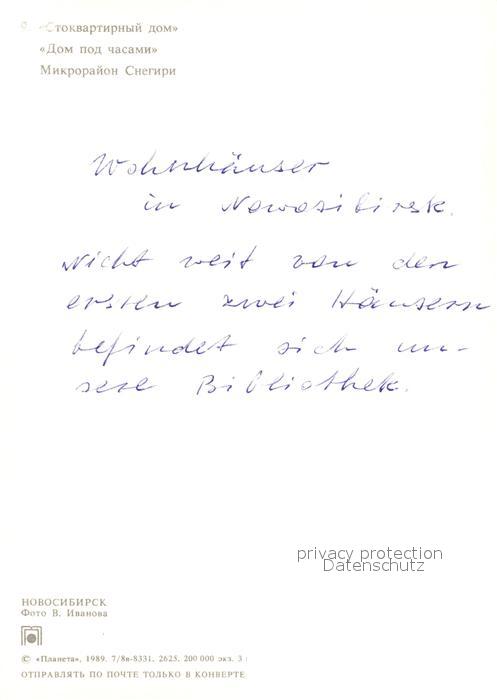 «Стоквартирный дом»
«Дом под часами»
Микрорайон Снегири
Wohnhäuser
in Nowosibirsk.
Nicht weit von den
ersten zwei Häusern
befindet sich un-
sere Bibliothek.
privacy protection
Datenschutz
НОВОСИБИРСК
Фото В. Иванова
© «Планета», 1989. 7/8в-8331. 2625. 200 000 экз. 3
ОТПРАВЛЯТЬ ПО ПОЧТЕ ТОЛЬКО В КОНВЕРТЕ